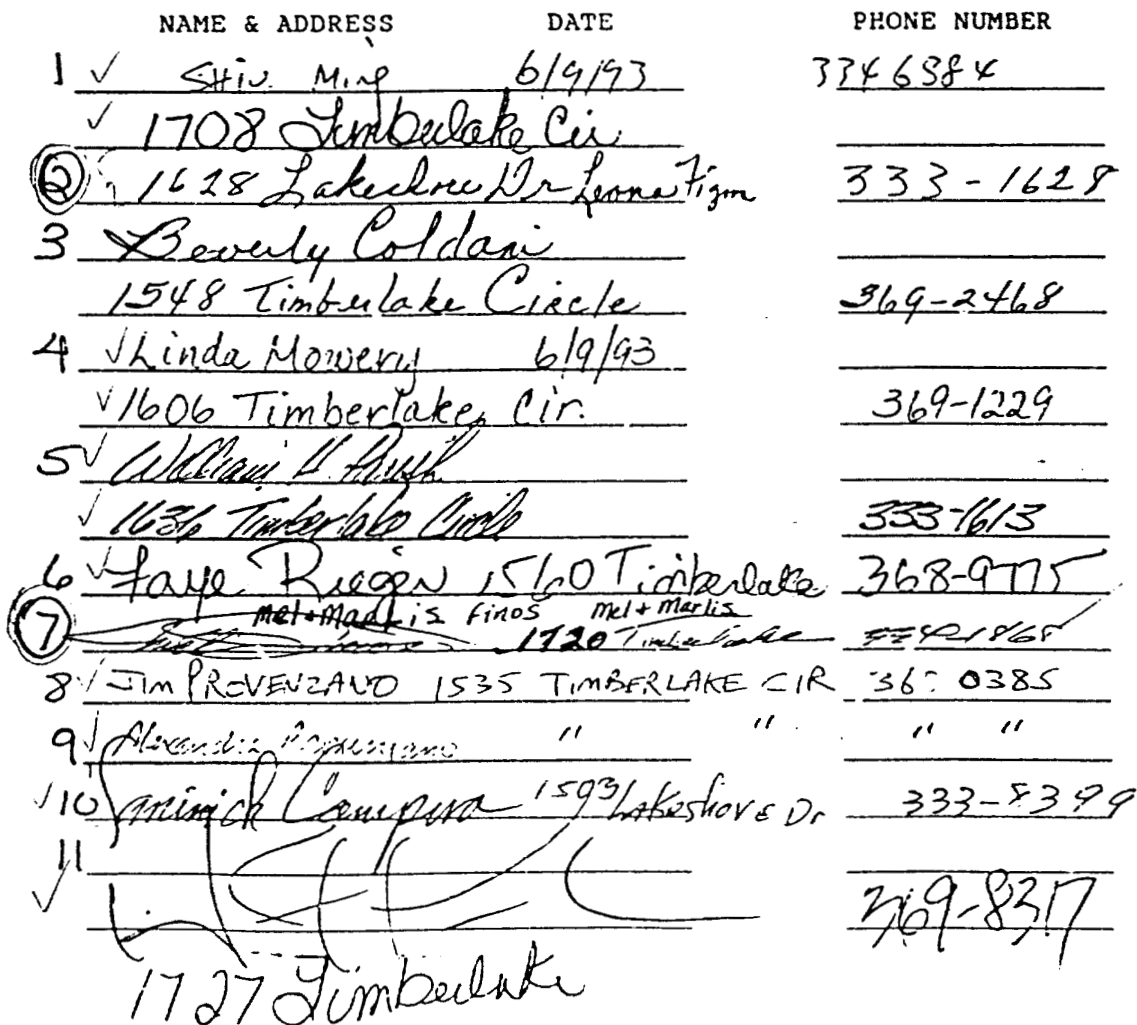 NAME & ADDRESS DATE PHONE NUMBER
1 ✓ SHIU Ming 6/9/93 3346584
✓ 1708 Timberlake Cir
2 1628 Lakeshore Dr Leona 333-1628
3 Beverly Coldani
1548 Timberlake Circle 369-2468
4 ✓ Linda Mowery 6/9/93
✓ 1606 Timberlake Cir. 369-1229
5 ✓ William H.
✓ 1636 Timberlake Circle 333-1613
6 ✓ Faye 1560 Timberlake 368-9775
Mel + Marlis Finos Mel + Marlis
7 1720 Timberlake
8 ✓ JIM PROVENZANO 1535 TIMBERLAKE CIR 36 0385
9 ✓ Alexandra Provenzano " " " "
✓ 10 1593 Lakeshore Dr 333-8399
11
✓ 369-8317
1727 Timberlake